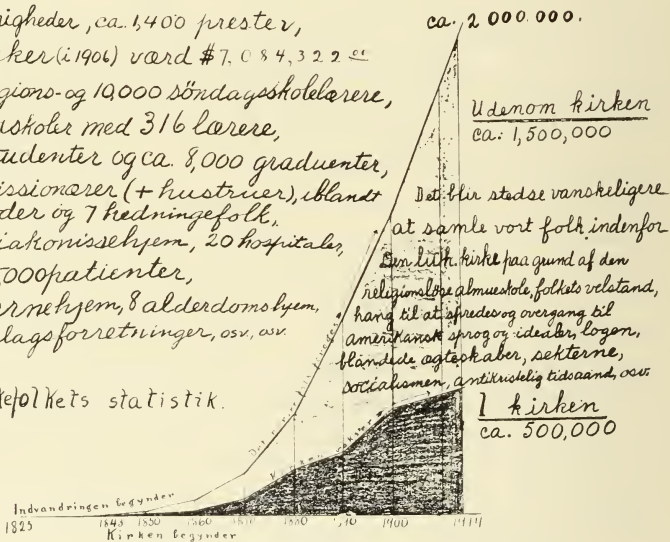 righeder, ca. 1,400 prester,
ker (i 1906) værd $7,084,322 00
gions- og 10,000 söndagsskolelærere,
uskoler med 316 lærere,
tudenter og ca. 8,000 graduenter,
issionærer (+ hustruer), iblandt
der og 7 hedningefolk,
iakonissehjem, 20 hospitaler,
000 patienter,
ernehjem, 8 alderdomshjem,
lagsforretninger, osv, osv.
kefolkets statistik.
ca. 2 000 000.
Udenom kirken
ca. 1,500,000
Det blir stedse vanskeligere
at samle vort folk indenfor
Den luth kirke paa grund af den
religionsløse almueskole, folkets velstand,
hang til at spredes og overgang til
amerikansk sprog og idealer, logen,
blandede ægteskaber, sekterne,
socialismen, antikristelig tidsaand, osv.
I kirken
ca. 500,000
Indvandringen begynder
1825 1843 1850 1860 1870 1880 1890 1900 1914
Kirken begynder